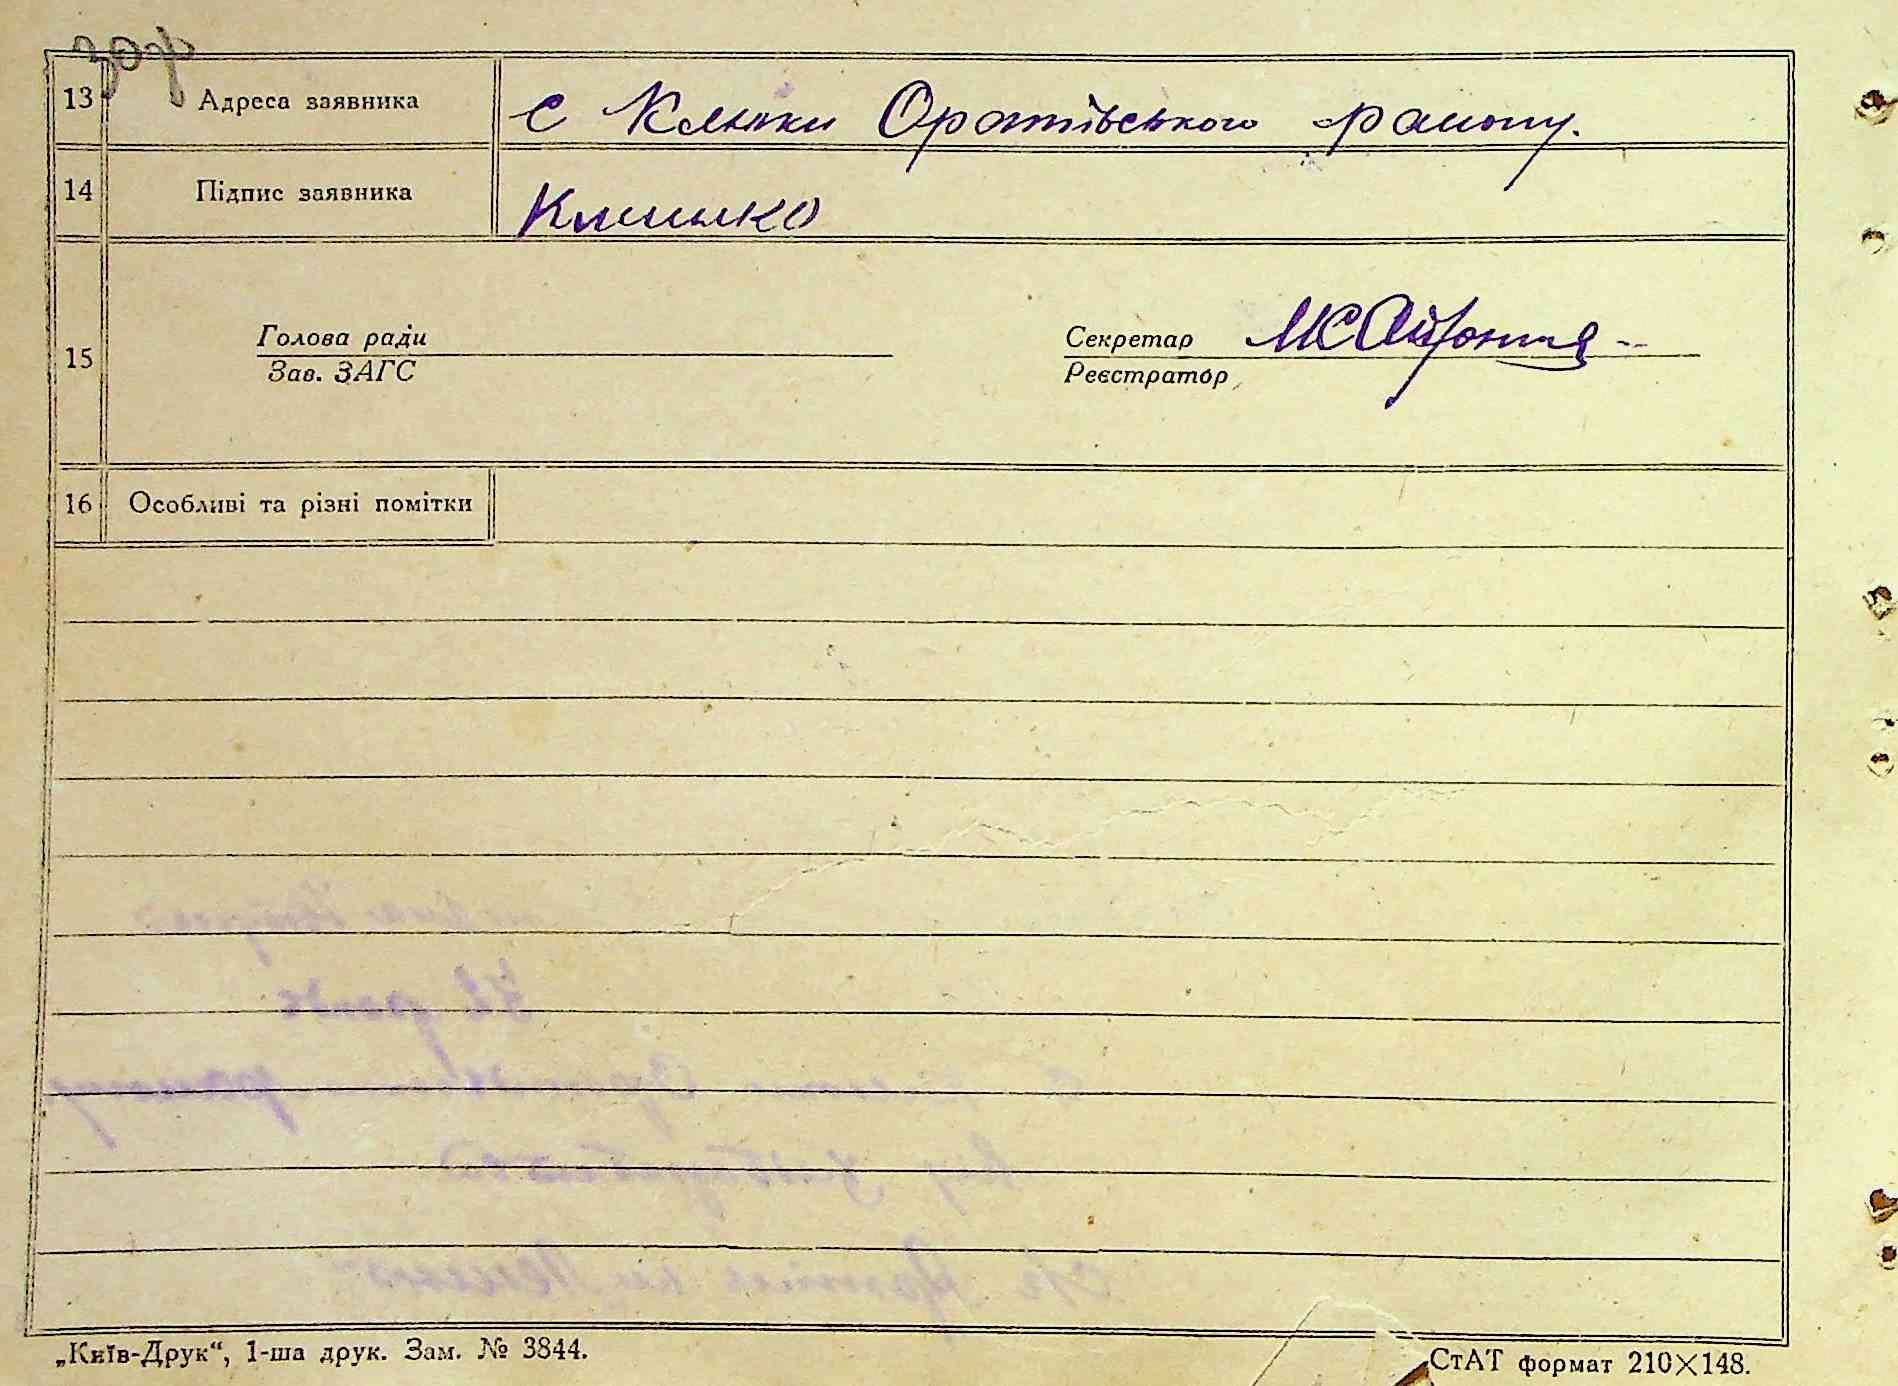 13 Адреса заявника с Клюки Оратівського району.
14 Підпис заявника Климко
15 Голова ради Секретар
Зав. ЗАГС Реєстратор
16 Особливі та різні помітки
„Київ-Друк“, 1-ша друк. Зам. № 3844. СтАТ формат 210×148.